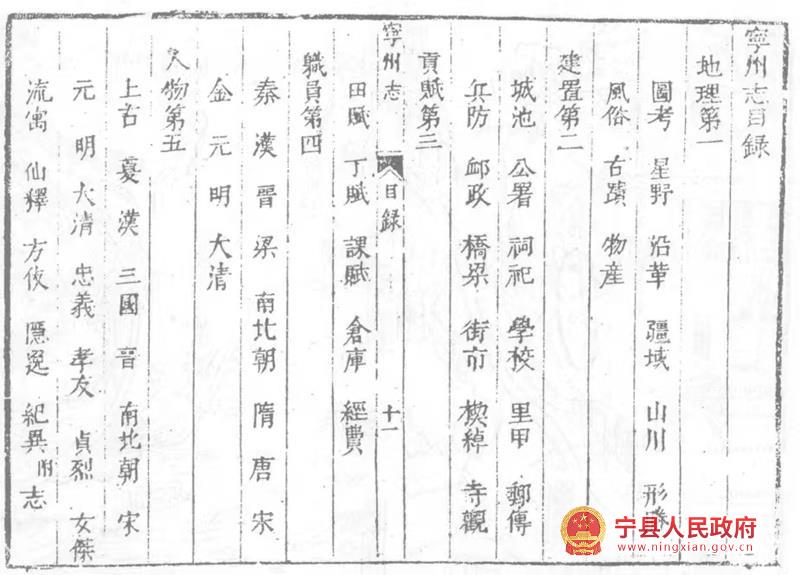 寧州志目録
地理第一
圖考 星野 沿革 疆域 山川 形勝
風俗 古蹟 物産
建置第二
城池 公署 祠祀 學校 里甲 郵傳
兵防 邮政 橋梁 街市 楔綽 寺觀
貢賦第三
寧州志 目録 十一
田賦 丁賦 課賦 倉庫 經費
職員第四
秦 漢 晉 梁 南北朝 隋 唐 宋
金 元 明 大清
人物第五
上古 夏 漢 三國 晉 南北朝 宋
元 明 大清 忠義 孝友 貞烈 女傑
流寓 仙釋 方伎 隱逸 紀異附志
宁县人民政府
www.ningxian.gov.cn